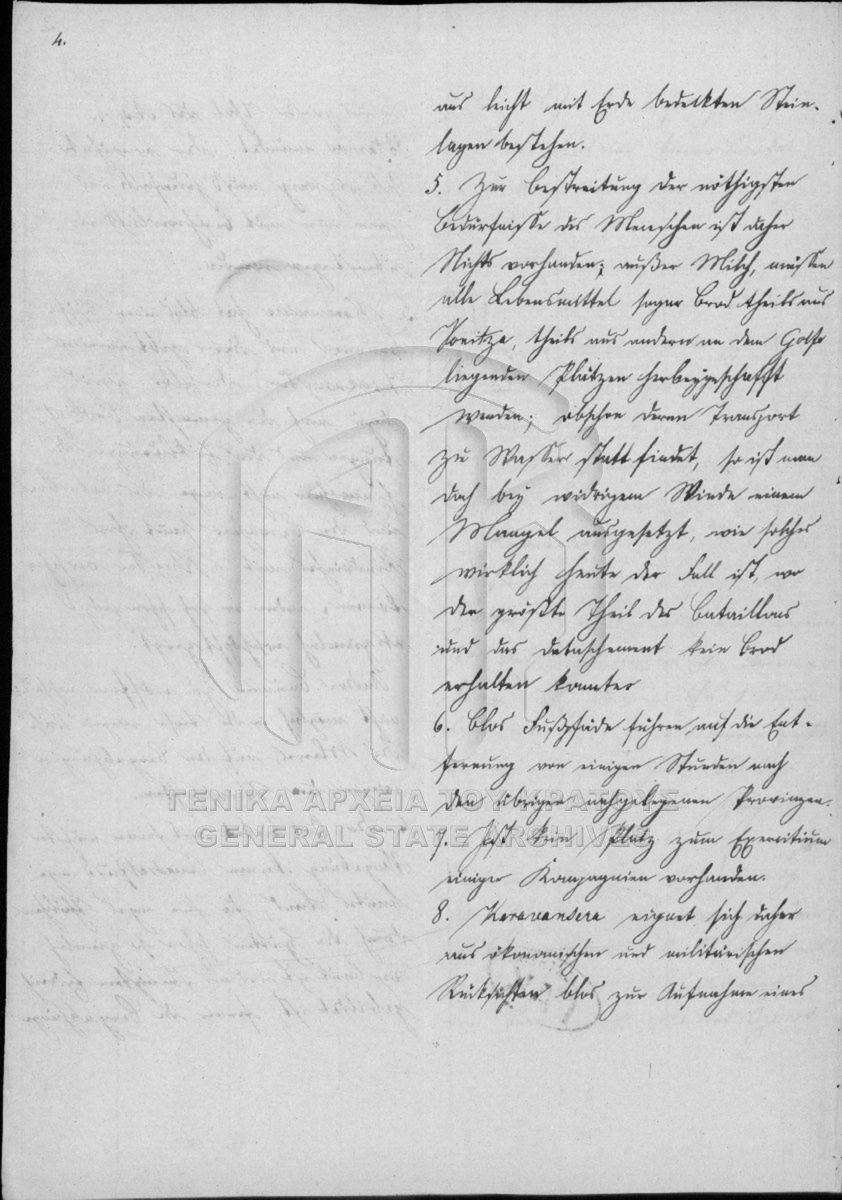 4.
aus leicht mit Erde bedeckten Stein-
lagen bestehen.
5. Zur Bestreitung der nöthigsten
Bedürfnisse des Menschen ist daher
Nichts vorhanden; außer Milch, müssen
alle Lebensmittel sogar Brod theils aus
theils aus andern an dem Golfe
liegenden Plätzen herbeygeschafft
werden; obschon deren Transport
zu Wasser statt findet, so ist man
doch bey widrigem Winde einem
Mangel ausgesetzt, wie solches
wirklich heute der Fall ist, wo
der größte Theil des Bataillons
und das Detaschement kein Brod
erhalten konnte
6. Blos Fußpfade führen auf die Ent-
fernung von einigen Stunden nach
den übrigen nachgelegenen Provinzen.
7. Ist kein Platz zum Exercitium
einiger Kompagnien vorhanden.
8. Karavansera eignet sich daher
aus ökonomischen und militärischen
Rücksichten blos zur Aufnahme eines
ΓΕΝΙΚΑ ΑΡΧΕΙΑ ΤΟΥ ΚΡΑΤΟΥΣ
GENERAL STATE ARCHIVES